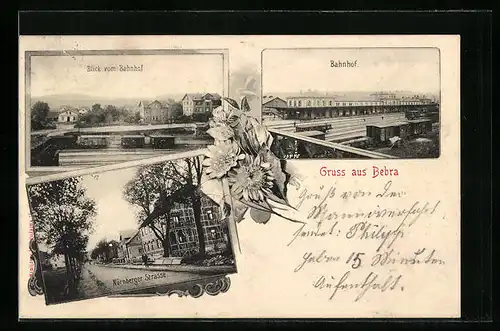 Blick vom Bahnhof
Bahnhof
Gruss aus Bebra
Gruß von der
sendet Philipp
haben 15 Minuten
Aufenthalt.
Nürnberger-Strasse